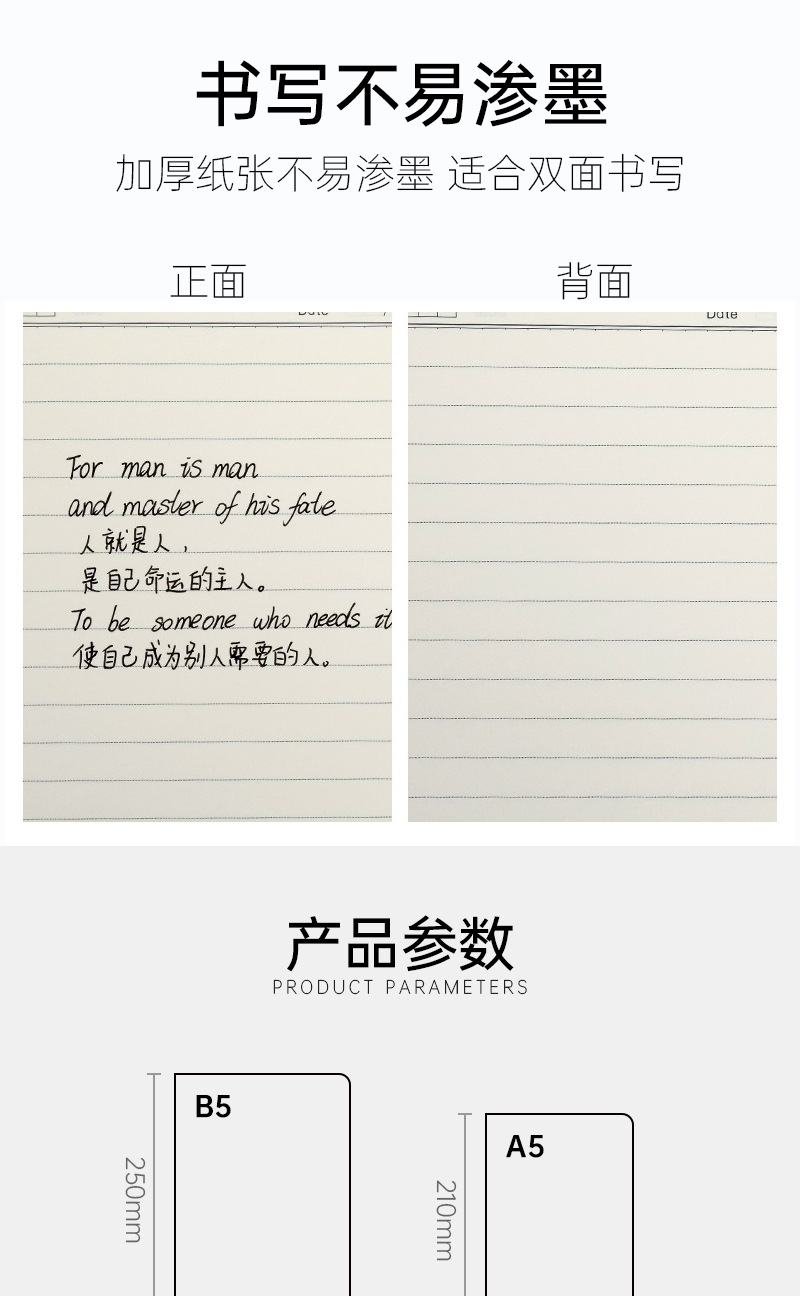 书写不易渗墨
加厚纸张不易渗墨 适合双面书写
正面
背面
Date
Date
For man is man
and master of his fate
人就是人，
是自己命运的主人。
To be someone who needs it
使自己成为别人需要的人。
产品参数
PRODUCT PARAMETERS
B5
250mm
A5
210mm